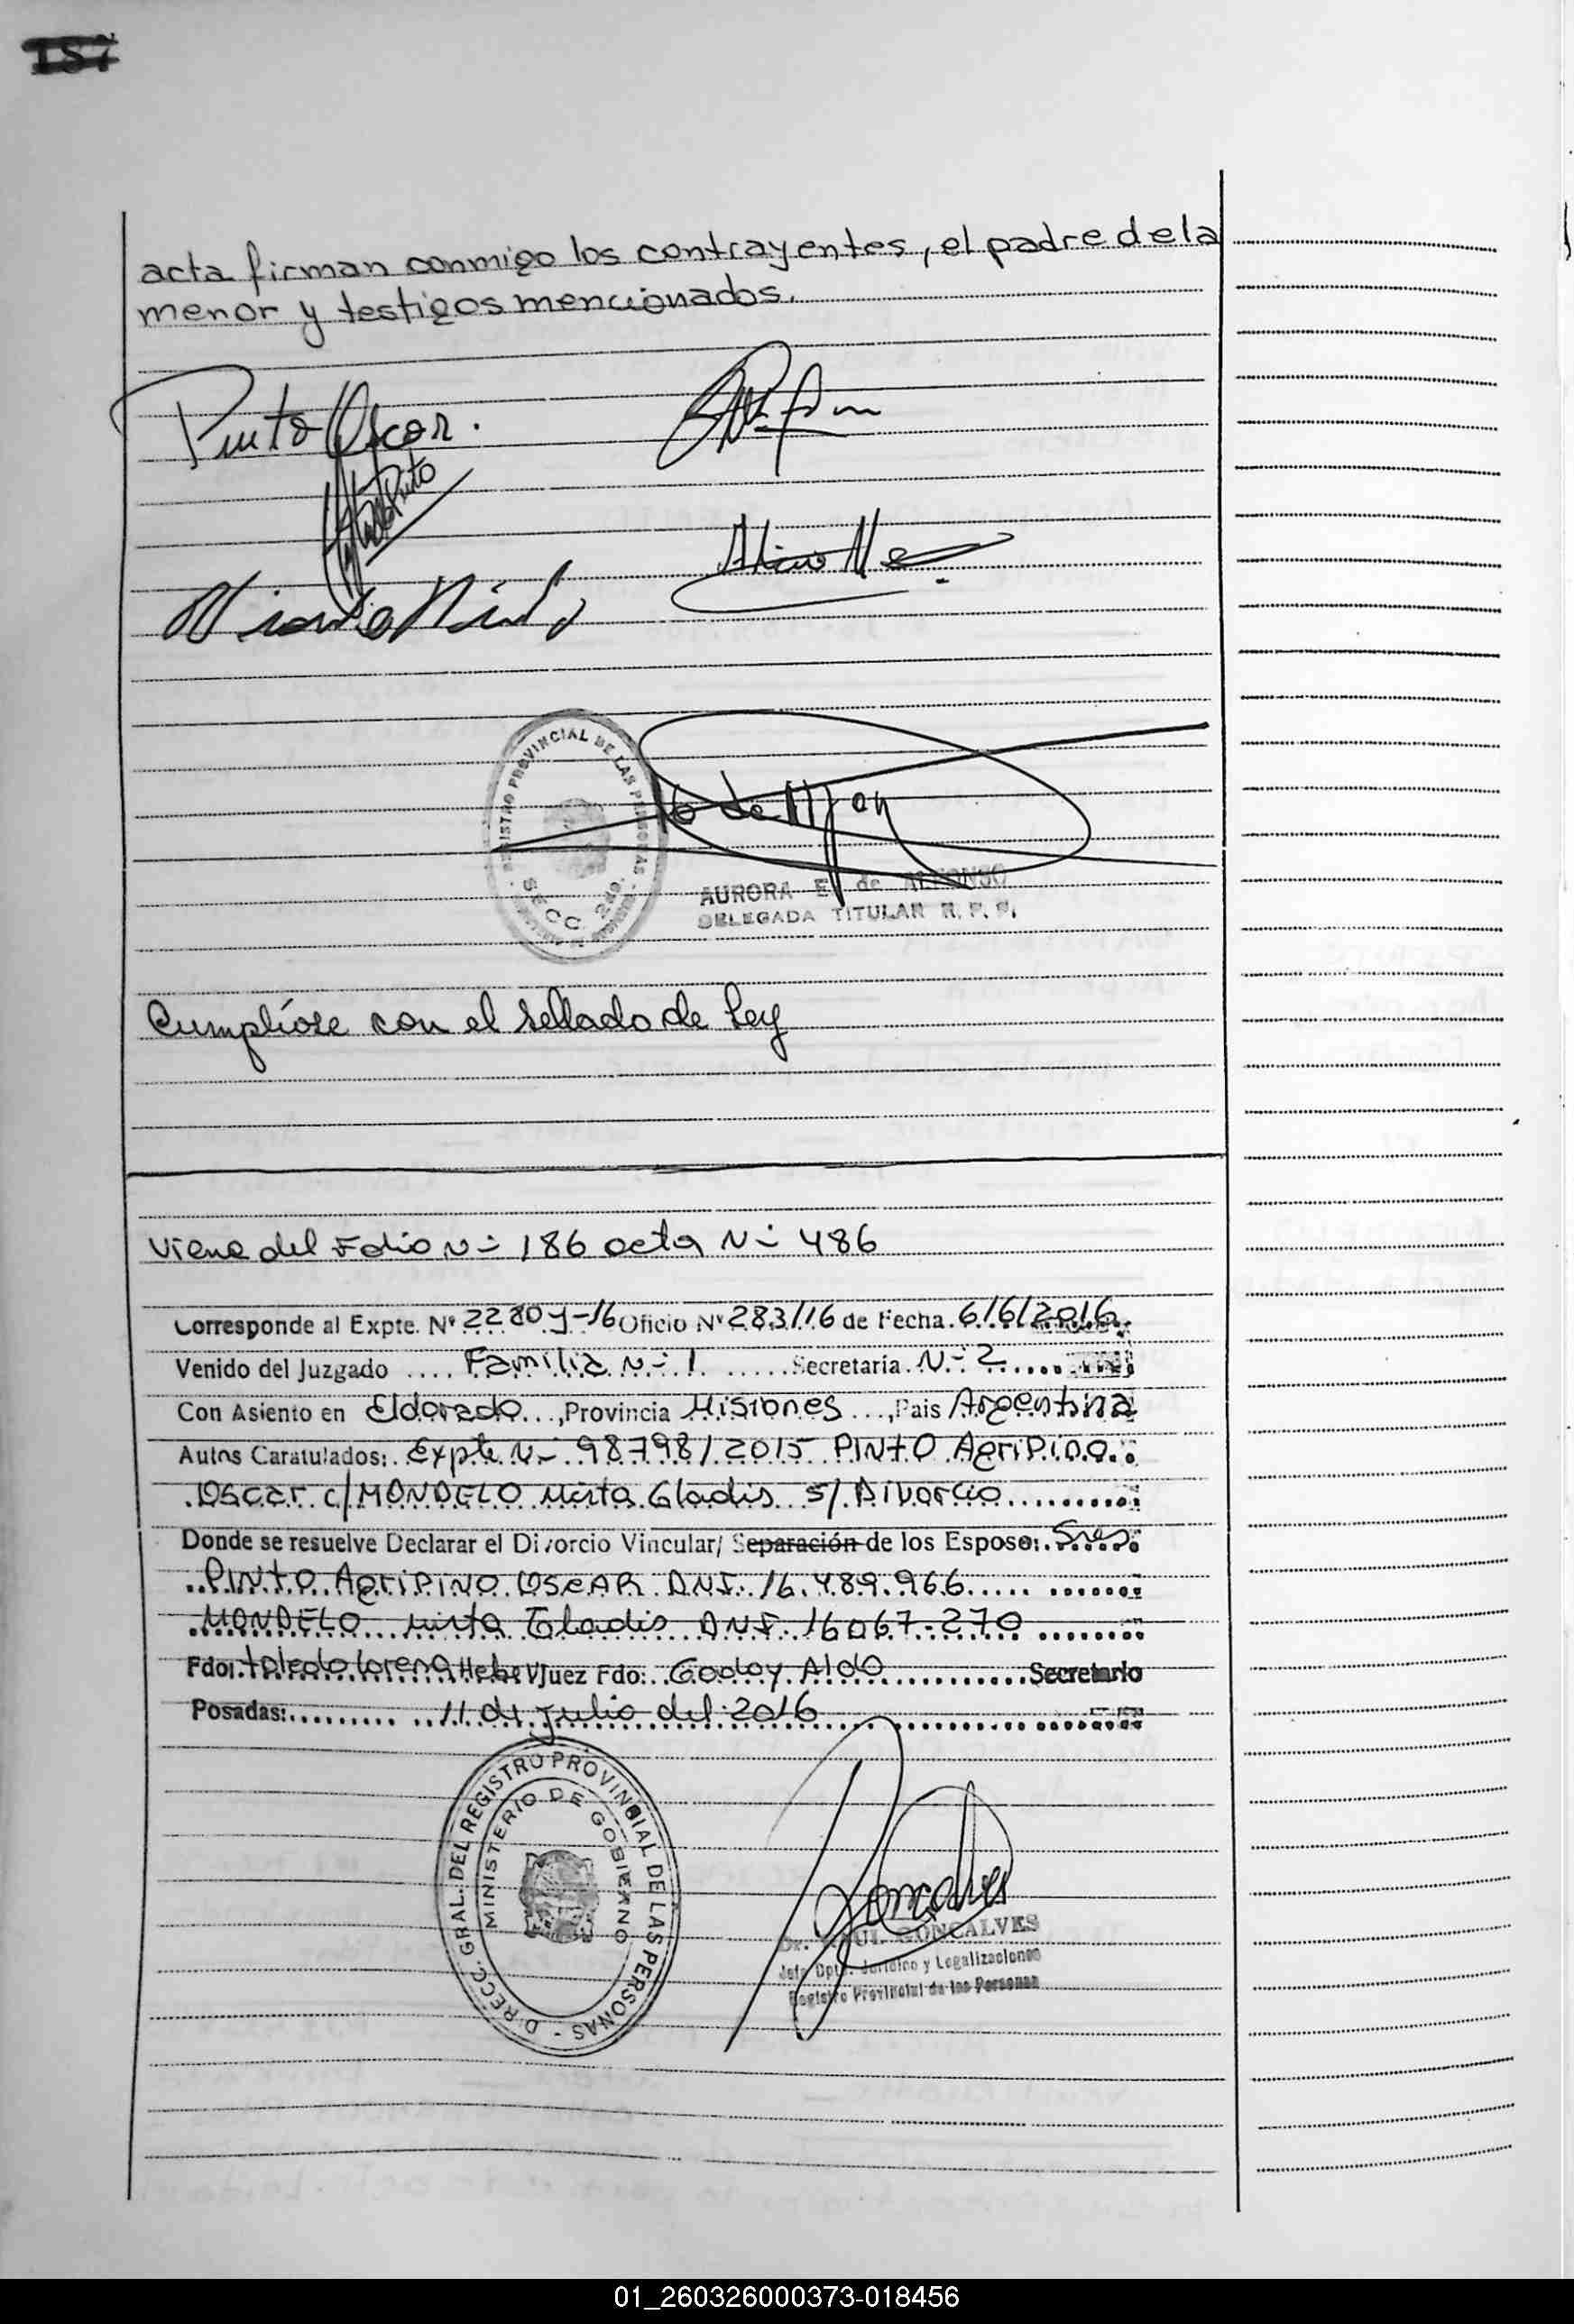 157
acta firman conmigo los contrayentes, el padre de la
menor y testigos mencionados.
Pinto Oscar.
Pinto
REGISTRO PROVINCIAL DE LAS PERSONAS
SECC. 2da.
AURORA E. de ALFONSO
DELEGADA TITULAR R. P. P.
Cumplióse con el sellado de ley
Viene del Folio N- 186 acta N- 486
Corresponde al Expte. Nº 2280 y-16 Oficio Nº 283/16 de Fecha. 6/6/2016.
Venido del Juzgado .... Familia N-1 ...... Secretaría. N-2.....
Con Asiento en Eldorado..., Provincia Misiones ..., Pais Argentina
Autos Caratulados: Expte N- 98798/2015 PINTO Agripino
Oscar c/MONDELO Mirta Gladis s/Divorcio..........
Donde se resuelve Declarar el Divorcio Vincular/ Separación de los Esposo: Sres
PINTO AGRIPINO OSCAR DNI. 16.489.966..... .......
MONDELO Mirta Gladis DNI 16067-270 ........
Fdo: Toledo Lorena Hebe Juez Fdo: Godoy Aldo ........... Secretario
Posadas:......... 11 de julio del 2016
DIRECC. GRAL. DEL REGISTRO PROVINCIAL DE LAS PERSONAS -
MINISTERIO DE GOBIERNO
Goncalves
Dr. RAUL GONCALVES
Jefe Dpto. Jurídico y Legalizaciones
Registro Provincial de las Personas
01_260326000373-018456